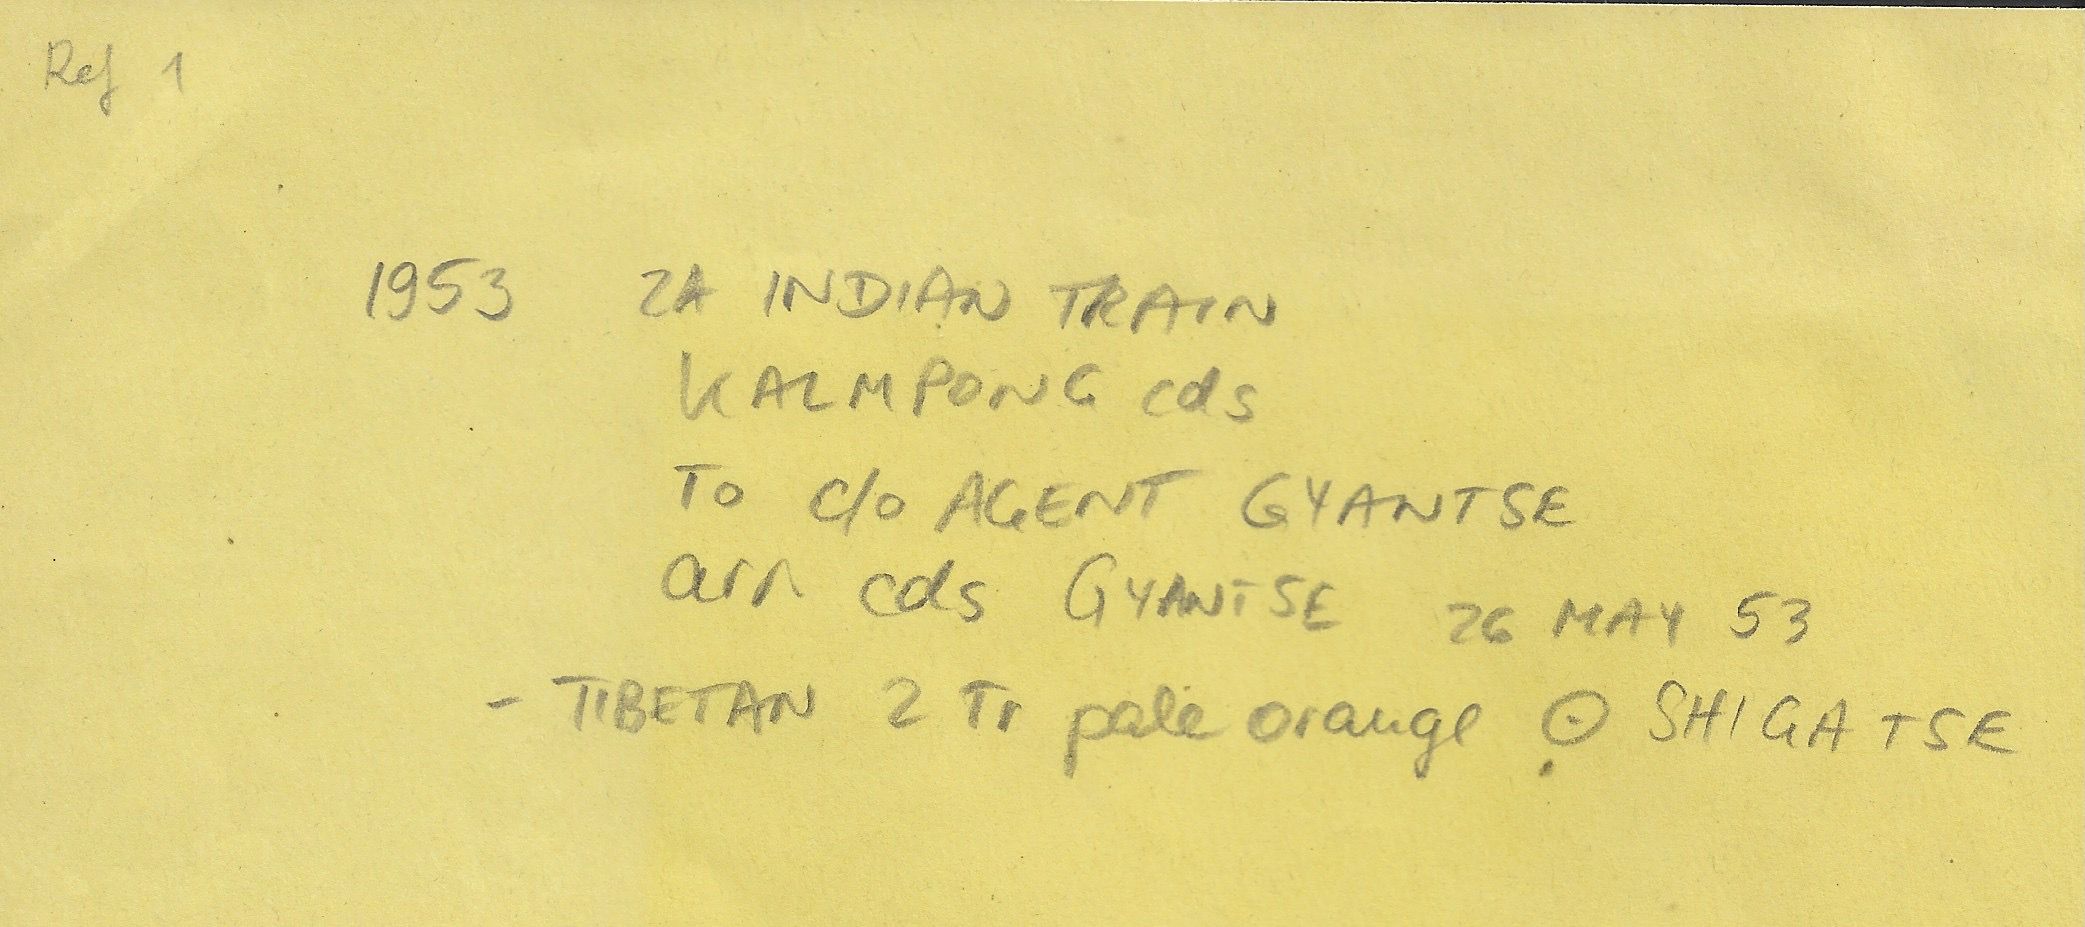 Ref 1
1953 2A INDIAN TRAIN
KALMPONG cds
To c/o AGENT GYANTSE
arr cds GYANTSE 26 MAY 53
- TIBETAN 2 Tr pale orange ⊙ SHIGATSE